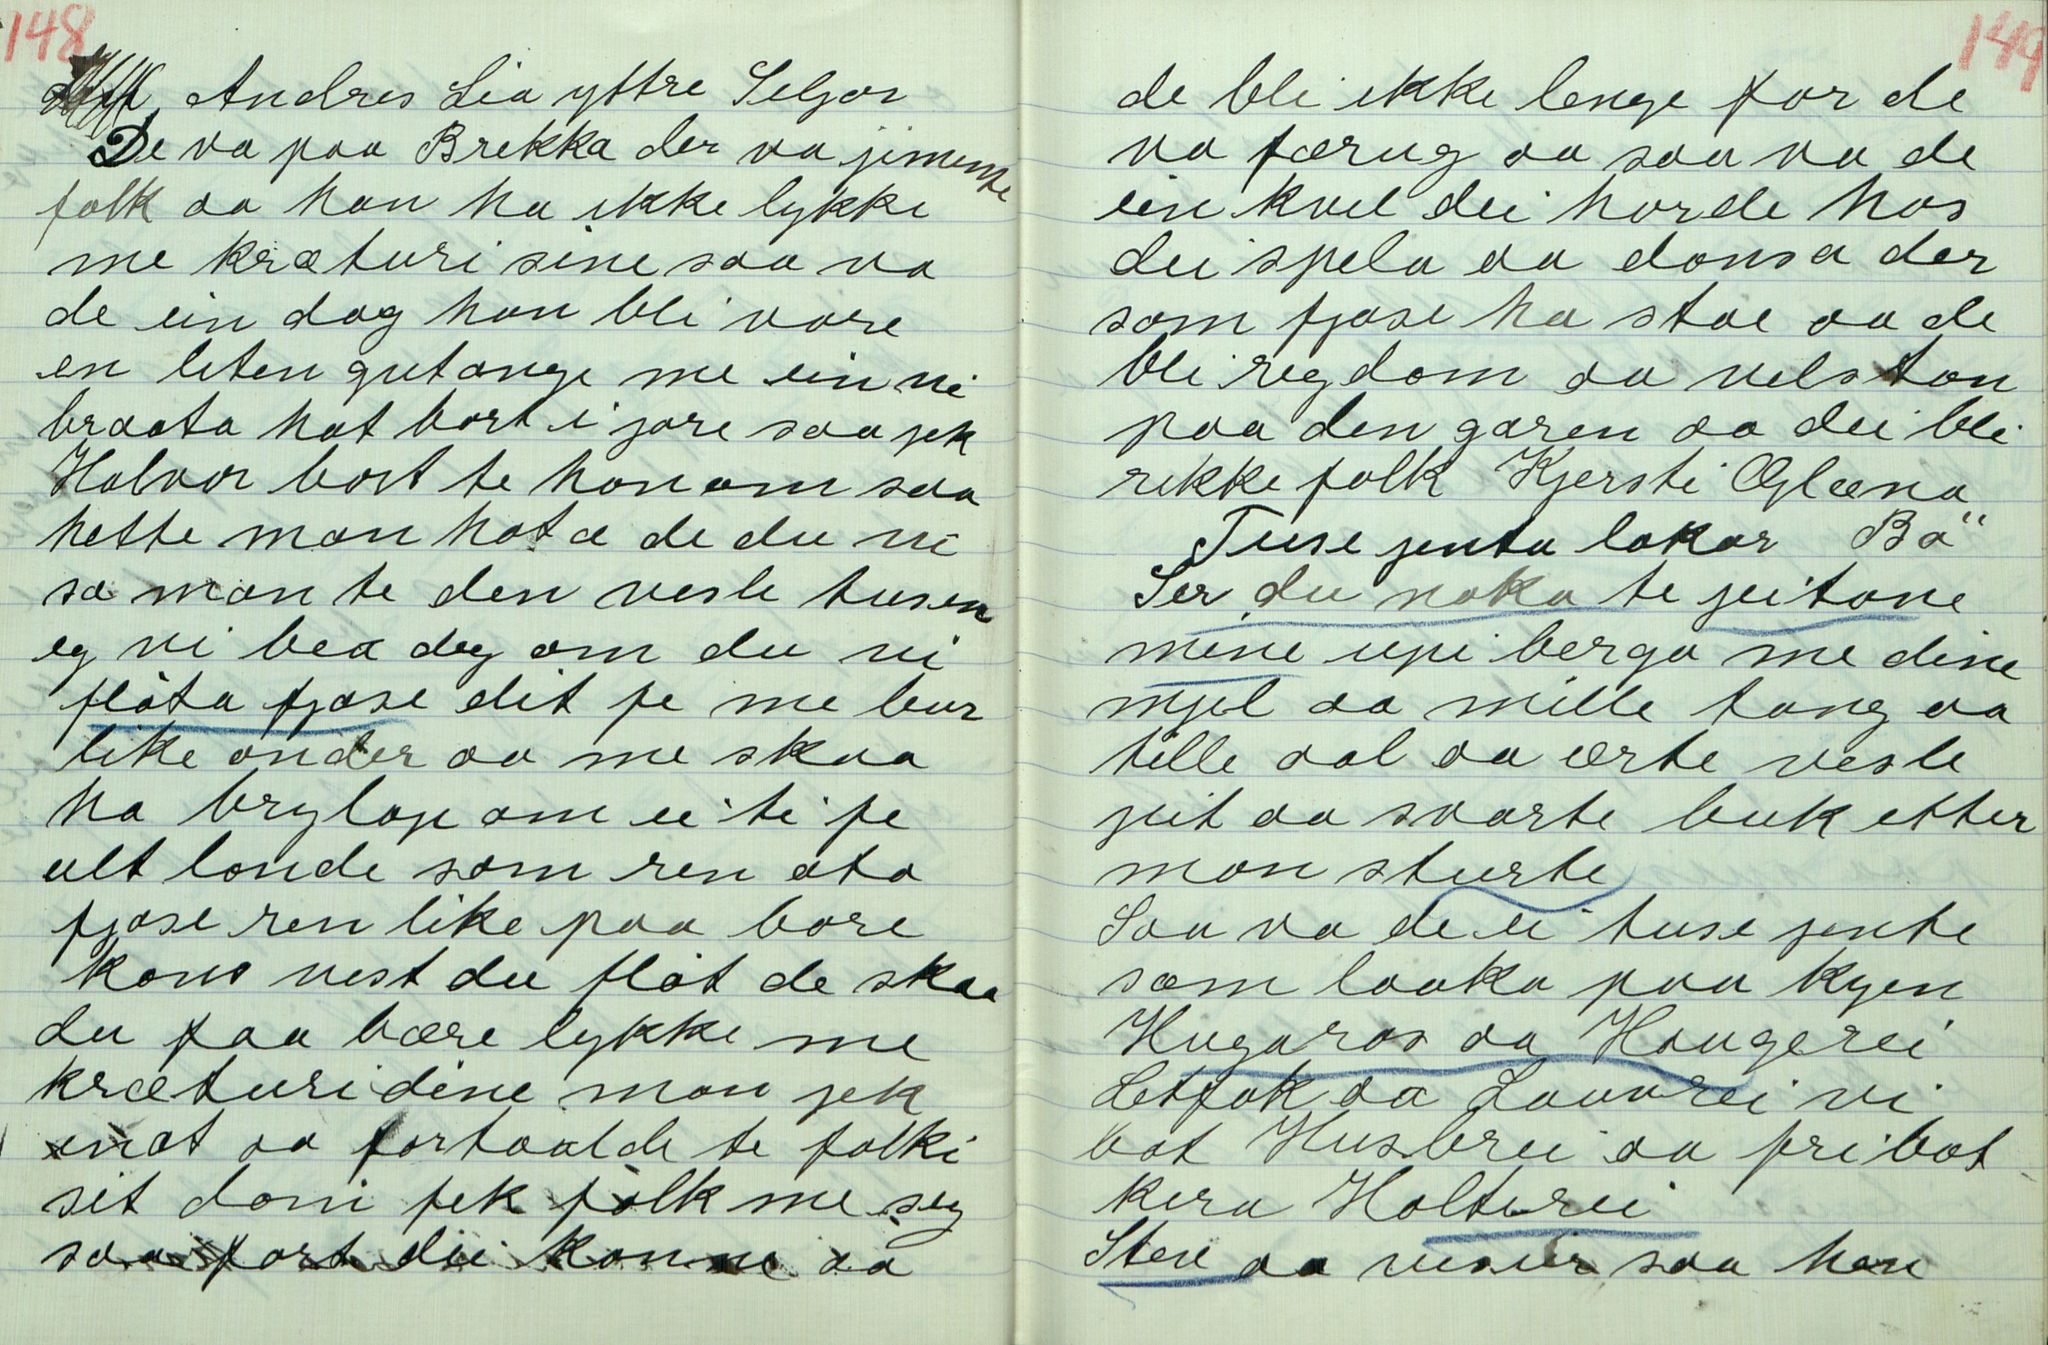 148
Andres Lia yttre Seljor
De va paa Brekka der va jimenne
folk aa han ha ikke lykke
me kræturi sine saa va
de ein dag han bli vare
en leten gutange me ein vi
braata hat bort i jore saa jek
Halvor bort te honom saa
hette man hat æ de du vi
sa man te den vesle tusen
eg vi bea deg om du vi
flöta fjøse dit fe me bur
like onder aa me skaa
ha brylop om ei ti fe
alt lande som ren ata
fjøse ren like paa bore
kons vest du flöt de skaa
du faa bære lykke me
kræturi dine man jek
inat aa fortaalde te folki
sit dom fek folk me seg
saa fort dei konne aa
149
de bli ikke lenge for de
va færug aa saa va de
ein kvel dei horde hos
dei spela aa donsa der
som fjøse ha stae aa de
bli regdom aa velston
paa den garen aa dei bli
rikke folk Kjersti Øglæna
Tuse jenta lokar Bö
Ser du noko te jeitane
mine upi berga me dine
mjel aa mille tang aa
tille aal aa ærte vesle
jeit aa svarte buk etter
mon sturte
Saa va de ei tuse jente
som laaka paa kyen
Hugaros aa Haugerei
Letfok aa Lauvrei vi
bot Husbrei aa fri bot
kera Holterei
Stere aa viser saa han